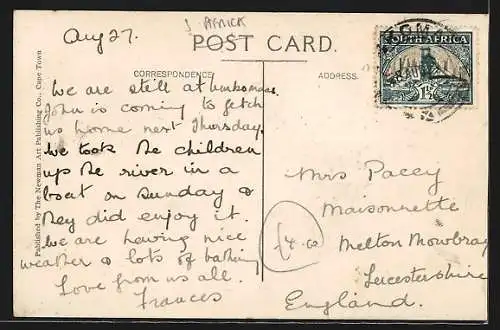 S AFRICA
Aug 27.
POST CARD.
CORRESPONDENCE
ADDRESS.
SOUTH AFRICA
1½
We are still at
John is coming to fetch
us home next Thursday.
We took the children
up the river in a
boat on Sunday &
they did enjoy it.
We are having nice
weather & lots of bathing
Love from us all.
Frances
Mrs Pacey
Maisonnette
Melton Mowbray
Leicestershire
England.
£4.00
Published by The Newman Art Publishing Co., Cape Town